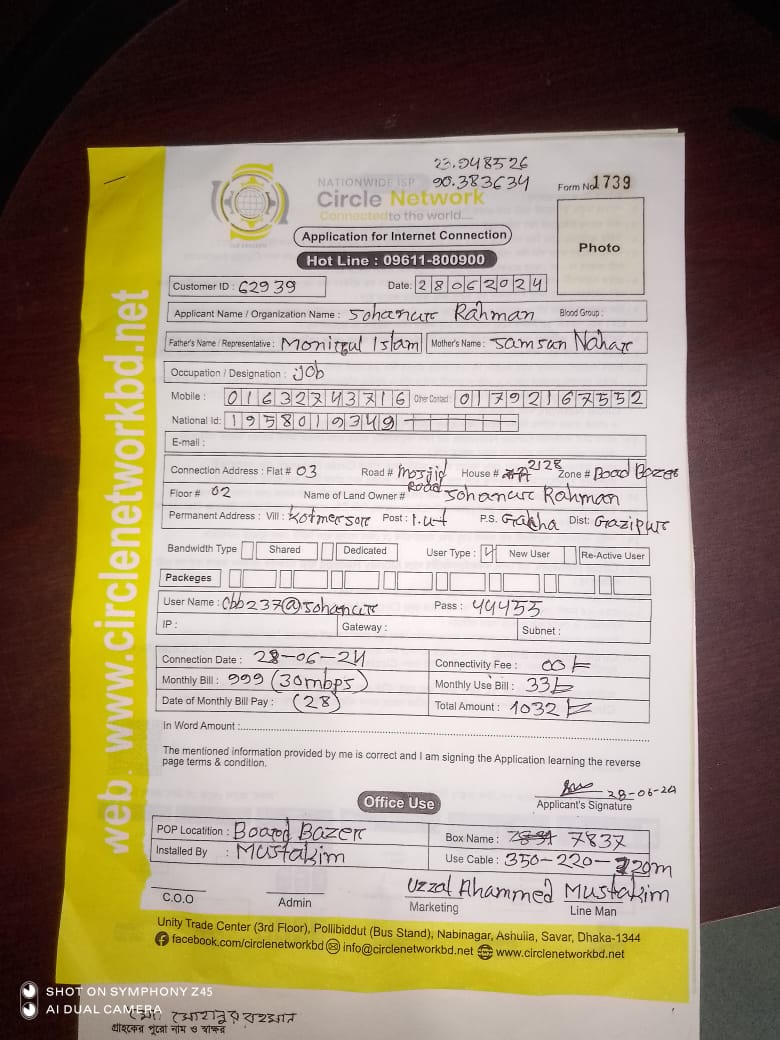 23.948526
90.383634
NATIONWIDE ISP
Circle Network
Connected to the world....
Form No 1739
Application for Internet Connection
Hot Line : 09611-800900
Photo
Customer ID : 62939 Date: 28062024
Applicant Name / Organization Name : Sohanur Rahman Blood Group :
Father's Name / Representative : Monirul Islam Mother's Name : Samsun Nahar
Occupation / Designation : Job
Mobile : 01632743716 Other Contact : 01792167552
National Id: 1958019349
E-mail :
Connection Address : Flat # 03 Road # Mosjid Road House # 2128 Zone # Boad Bazer
Floor # 02 Name of Land Owner # Sohanur Rahman
Permanent Address : Vill : Post : P.S. Dist: Gazipur
Bandwidth Type Shared Dedicated User Type : New User Re-Active User
Packeges
User Name : Cbb237@sohanur Pass : 44455
IP : Gateway : Subnet :
Connection Date : 28-06-24 Connectivity Fee : 00/=
Monthly Bill : 999 (30mbps) Monthly Use Bill : 33/=
Date of Monthly Bill Pay : (28) Total Amount : 1032/=
In Word Amount :
The mentioned information provided by me is correct and I am signing the Application learning the reverse
page terms & condition.
28-06-24
Applicant's Signature
Office Use
POP Locatition : Board Bazer Box Name : 7837
Installed By : Mustakim Use Cable : 350-220-120m
Uzzal Ahammed Mustakim
C.O.O Admin Marketing Line Man
Unity Trade Center (3rd Floor), Pollibiddut (Bus Stand), Nabinagar, Ashulia, Savar, Dhaka-1344
facebook.com/circlenetworkbd info@circlenetworkbd.net www.circlenetworkbd.net
web. www.circlenetworkbd.net
SHOT ON SYMPHONY Z45
AI DUAL CAMERA
মোঃ সোহানুর রহমান
গ্রাহকের পুরো নাম ও স্বাক্ষর